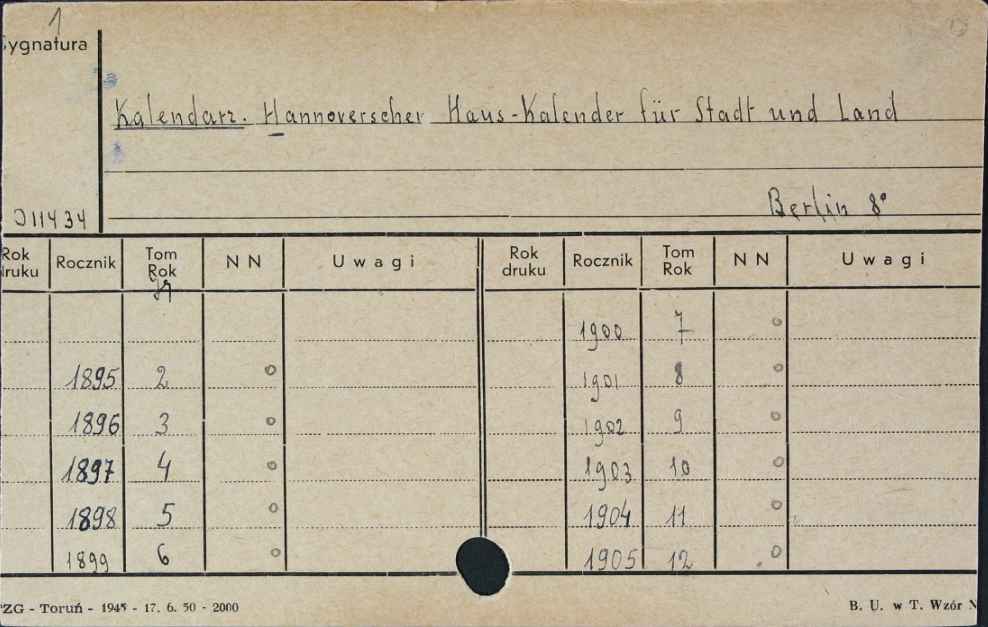 1
Sygnatura
Kalendarz. Hannoverscher Haus-Kalender für Stadt und Land
Berlin 8°
011434
Rok druku Rocznik Tom Rok NN Uwagi Rok druku Rocznik Tom Rok NN Uwagi
Jg
1900 7 o
1895 2 o 1901 8 o
1896 3 o 1902 9 o
1897 4 o 1903 10 o
1898 5 o 1904 11 o
1899 6 o 1905 12 o
PZG - Toruń - 1945 - 17. 6. 50 - 2000 B. U. w T. Wzór N